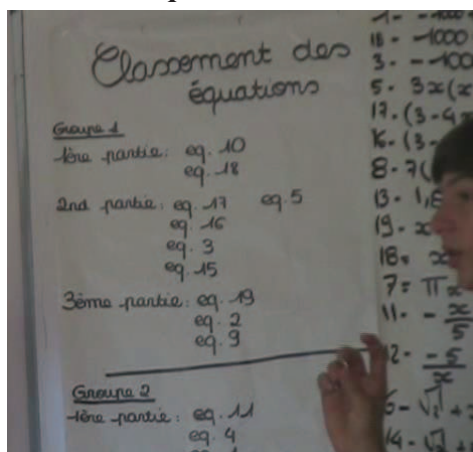 Classement des
équations
Groupe 1
1ère partie: eq. 10
eq. 18
2nd partie: eq. 17 eq. 5
eq. 16
eq. 3
eq. 15
3ème partie: eq. 19
eq. 2
eq. 9
Groupe 2
1ère partie: eq. 11
eq. 4
18 - -1000
3 - -100
5 - 3x(x
17 - (3-4x
16 - (3-
8 - 7(
13 - 1,8
19 - x
18= x
7 = πx
11 - - x/5
12 - -5/x